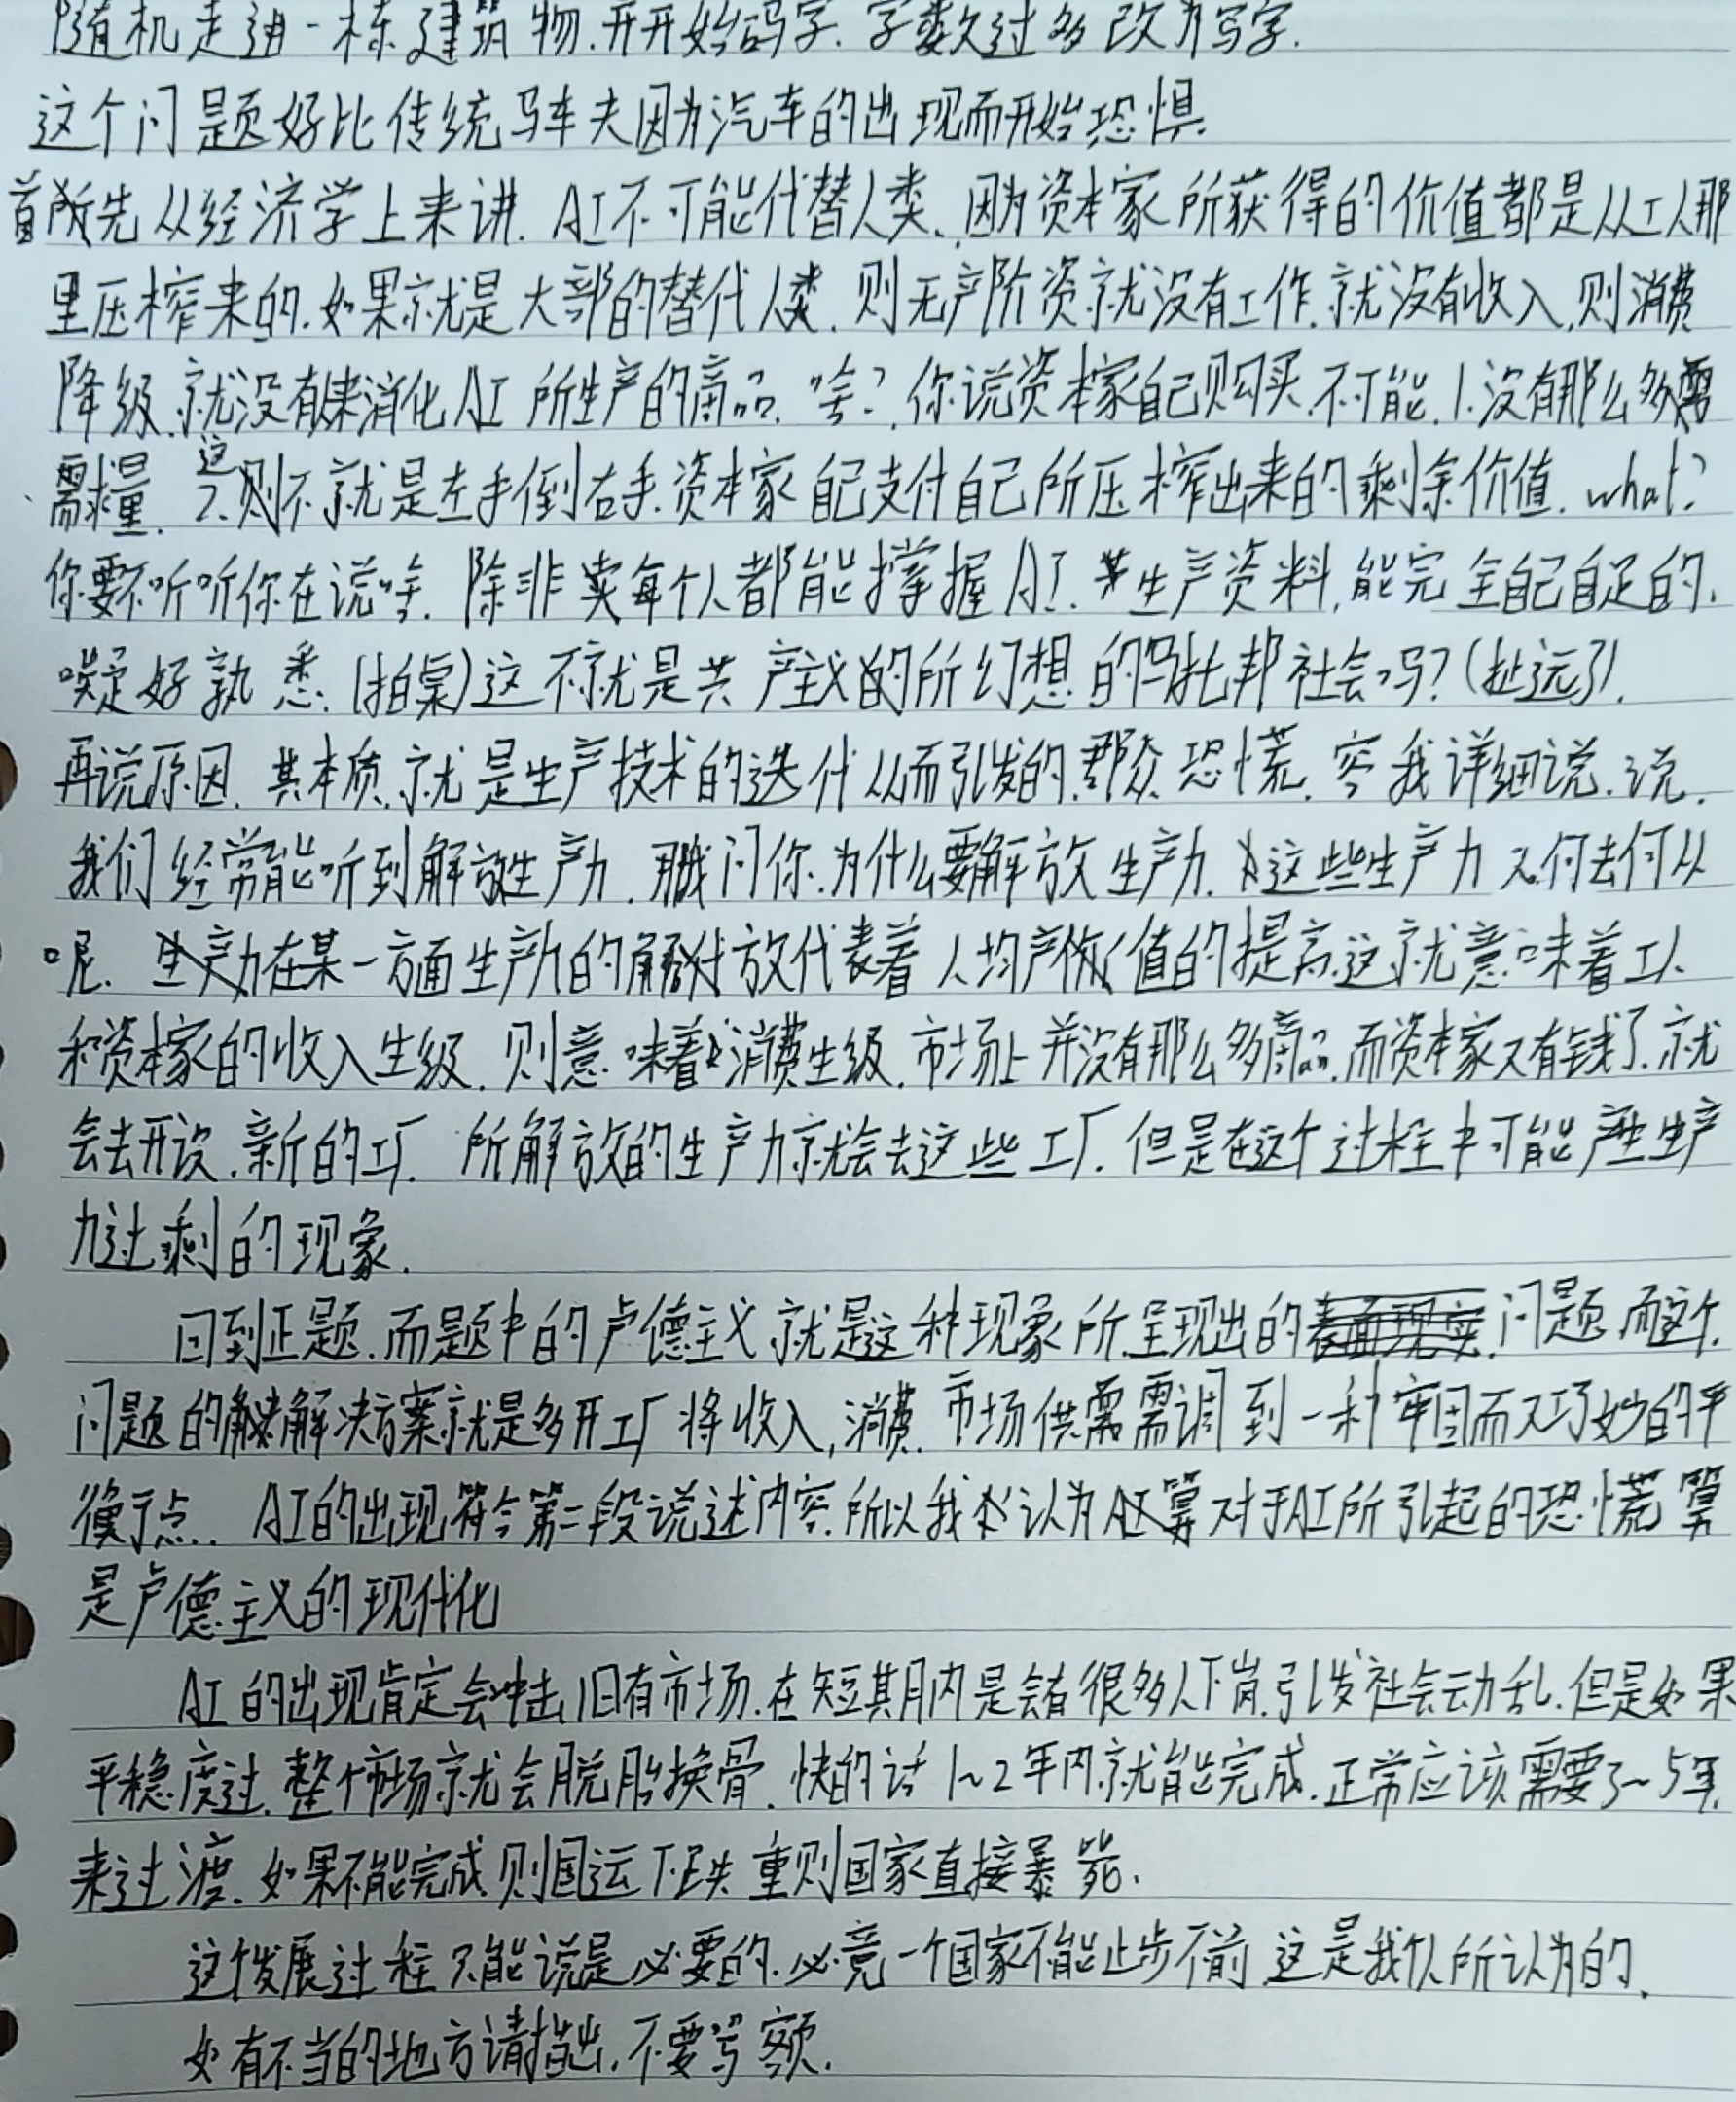 随机走进一栋建筑物.开开始码字.字数过多改为写字.
这个问题好比传统马车夫因为汽车的出现而开始恐惧
首先从经济学上来讲.AI不可能代替人类.因为资本家所获得的价值都是从工人那
里压榨来的.如果就是大部的替代人类.则无产阶资就没有工作.就没有收入,则消费
降级.就没有来消化AI所生产的商品.啥?你说资本家自己购买.不可能.1.没有那么多
需求量.2.这不就是左手倒右手.资本家自己支付自己所压榨出来的剩余价值.what?
你要不听听你在说啥.除非每个人都能掌握AI.生产资料,能完全自己自足的.
嘆好熟悉.(拍桌)这不就是共产主义的所幻想的乌托邦社会吗?(扯远了).
再说原因.其本质.就是生产技术的迭代从而引发的.群众恐慌.容我详细说.说.
我们经常能听到解放生产力.那我问你.为什么要解放生产力.这些生产力又何去何从
呢.在某一方面生产力的解放代表着人均产值的提高.这就意味着工人
和资本家的收入生级.则意味着消费生级.市场上并没有那么多商品.而资本家又有钱了.就
会去开设.新的工厂.所解放的生产力就会去这些工厂.但是在这个过程中可能产生生产
力过剩的现象.
回到正题.而题中的卢德主义就是这种现象所呈现出的问题.而这个
问题的解决方案就是多开工厂将收入,消费.市场供需需调到一种牢固而又巧妙的平
衡点..AI的出现符合第二段说述内容.所以我认为对于AI所引起的恐慌算
是卢德主义的现代化
AI的出现肯定会冲击旧有市场.在短其月内是会有很多人下岗.引发社会动乱.但是如果
平稳度过.整个市场就会脱胎换骨.快的话1~2年内就能完成.正常应该需要3~5年.
来过渡.如果不能完成则国运下跌重则国家直接暴毙.
这个发展过程只能说是必要的.必竟一个国家不能止步不前这是我个人所认为的.
如有不当的地方请指出.不要骂额.